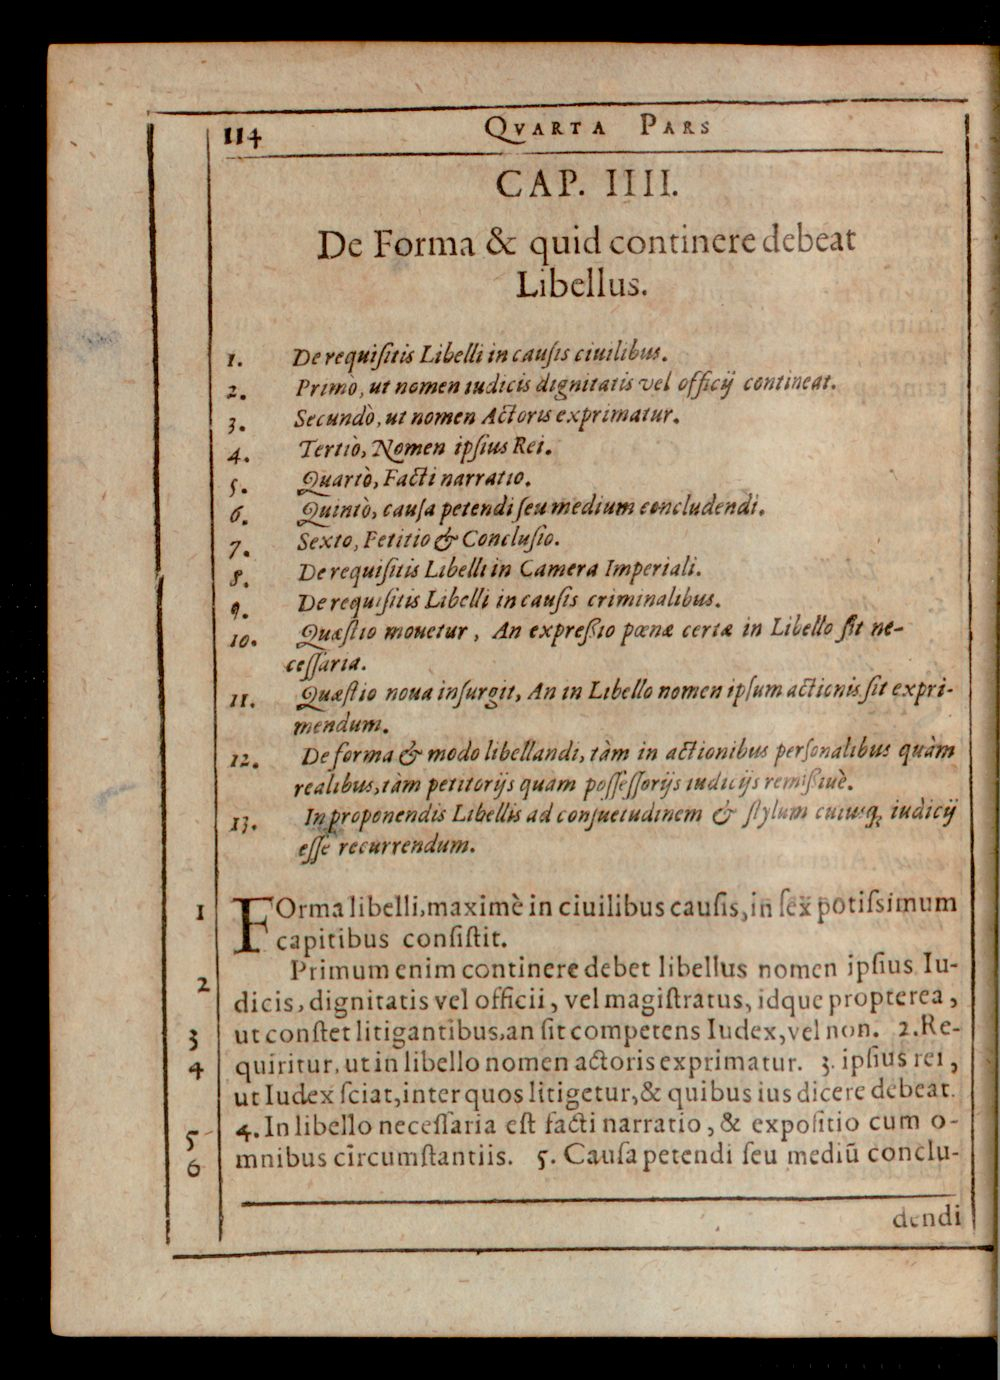 114 QVARTA PARS
CAP. IIII.
De Forma & quid continere debeat
Libellus.
1. De requiſitis Libelli in cauſis ciuilibus.
2. Primò, ut nomen iudicis dignitatis vel officij contineat.
3. Secundò, ut nomen Actoris exprimatur.
4. Tertiò, Nomen ipſius Rei.
5. Quartò, Facti narratio.
6. Quintò, cauſa petendi ſeu medium concludendi.
7. Sexto, Petitio & Concluſio.
8. De requiſitis Libelli in Camera Imperiali.
9. De requiſitis Libelli in cauſis criminalibus.
10. Quæſtio mouetur, An expreßio pœnæ certæ in Libello ſit ne-
ceſſaria.
11. Quæſtio noua inſurgit, An in Libello nomen ipſum actionis ſit expri-
mendum.
12. De forma & modo libellandi, tàm in actionibus perſonalibus quàm
realibus, tàm petitorijs quam poſſeſſorijs iudicijs remißiuè.
13. In proponendis Libellis ad conſuetudinem & ſtylum cuiusq; iudicij
eſſe recurrendum.
1 FOrma libelli, maximè in ciuilibus cauſis, in ſex potiſsimum
capitibus conſiſtit.
2 Primum enim continere debet libellus nomen ipſius Iu-
dicis, dignitatis vel officii, vel magiſtratus, idque propterea,
3 ut conſtet litigantibus, an ſit competens Iudex, vel non. 2. Re-
4 quiritur, ut in libello nomen actoris exprimatur. 3. ipſius rei,
ut Iudex ſciat, inter quos litigetur, & quibus ius dicere debeat.
5 4. In libello neceſſaria eſt facti narratio, & expoſitio cum o-
6 mnibus circumſtantiis. 5. Cauſa petendi ſeu mediũ conclu-
dendi